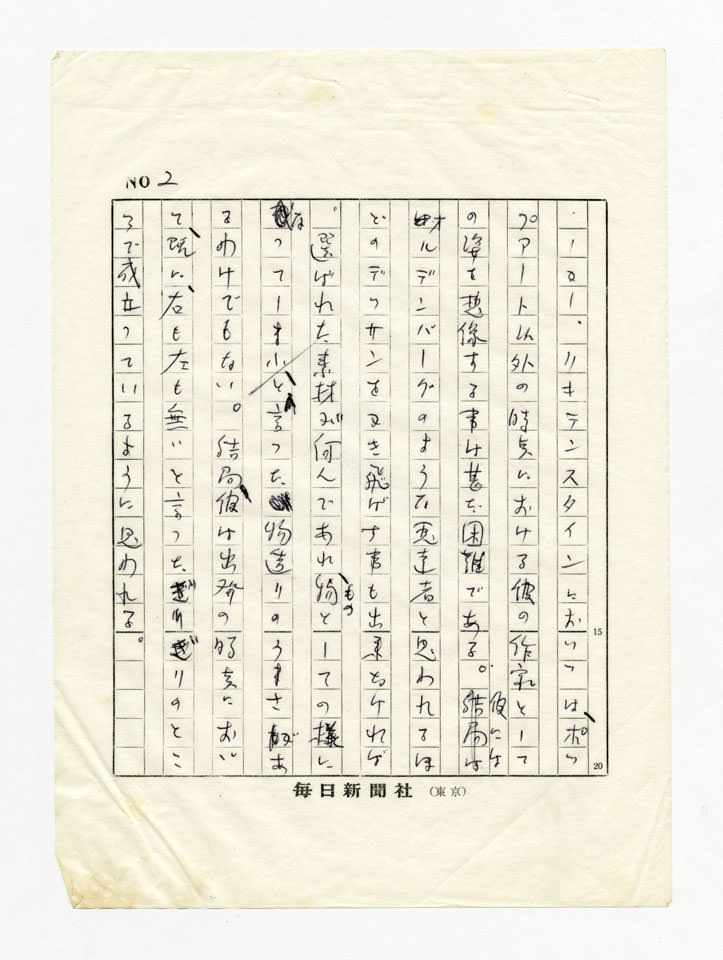 NO 2
しかし、リキテンスタインにおいてはポッ
プアート以外の時点における彼の作家として
の姿を想像する事は甚だ困難である。彼には結局は
オルデンバーグのような悪達者と思われるほ
どのデッサンを
き飛ばす事も出来なければ
選ばれた素材が何んであれ、物としての様に
もの
なって
と言った物造りのうまさがあ
るわけでもない。結局、彼は出発の時点におい
て、既に、右も左も無いと言ったぎりぎりのとこ
ろで成立っているように思われる。
15
20
毎日新聞社(東京)